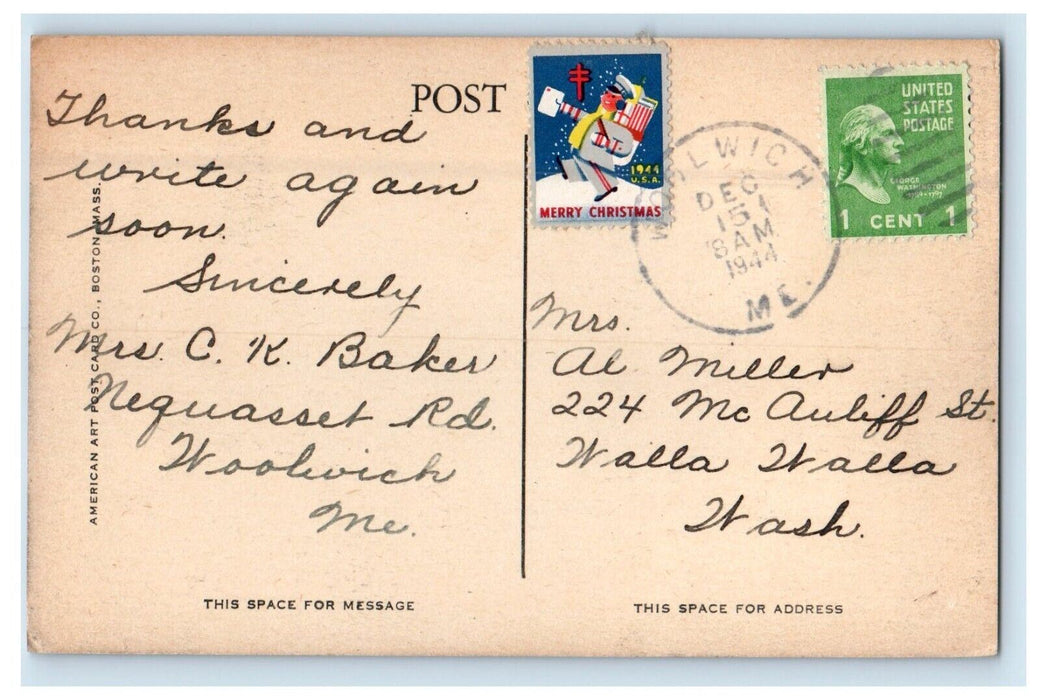 POST
Thanks and
write again
soon.
Sincerely
Mrs. C. K. Baker
Nequasset Rd.
Woolwich
Me.
AMERICAN ART POST CARD CO., BOSTON, MASS.
THIS SPACE FOR MESSAGE
1944
U.S.A.
MERRY CHRISTMAS
WOOLWICH
DEC
15
8 AM
1944
ME.
UNITED
STATES
POSTAGE
GEORGE
WASHINGTON
1789-1797
1 CENT 1
Mrs.
Al Miller
224 Mc Auliff St.
Walla Walla
Wash.
THIS SPACE FOR ADDRESS